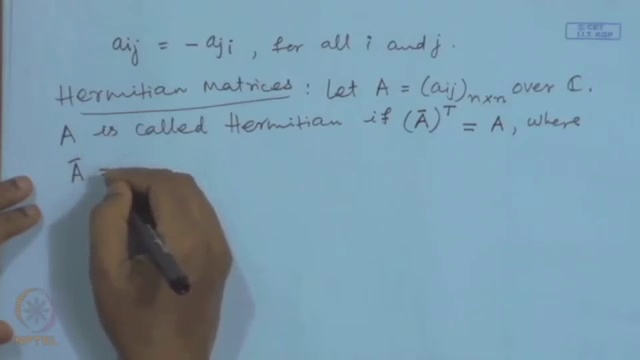 © CET
I.I.T. KGP
aij = - aji , for all i and j.
Hermitian Matrices : Let A = (aij)n×n over ℂ.
A is called Hermitian if (Ā)ᵀ = A, where
Ā =
NPTEL